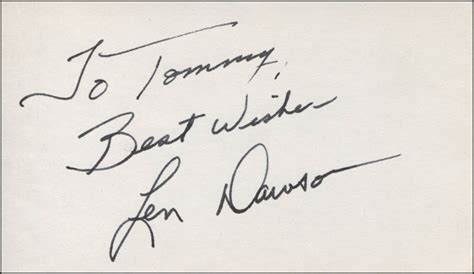 To Tommy,
Best Wishes
Len Dawson